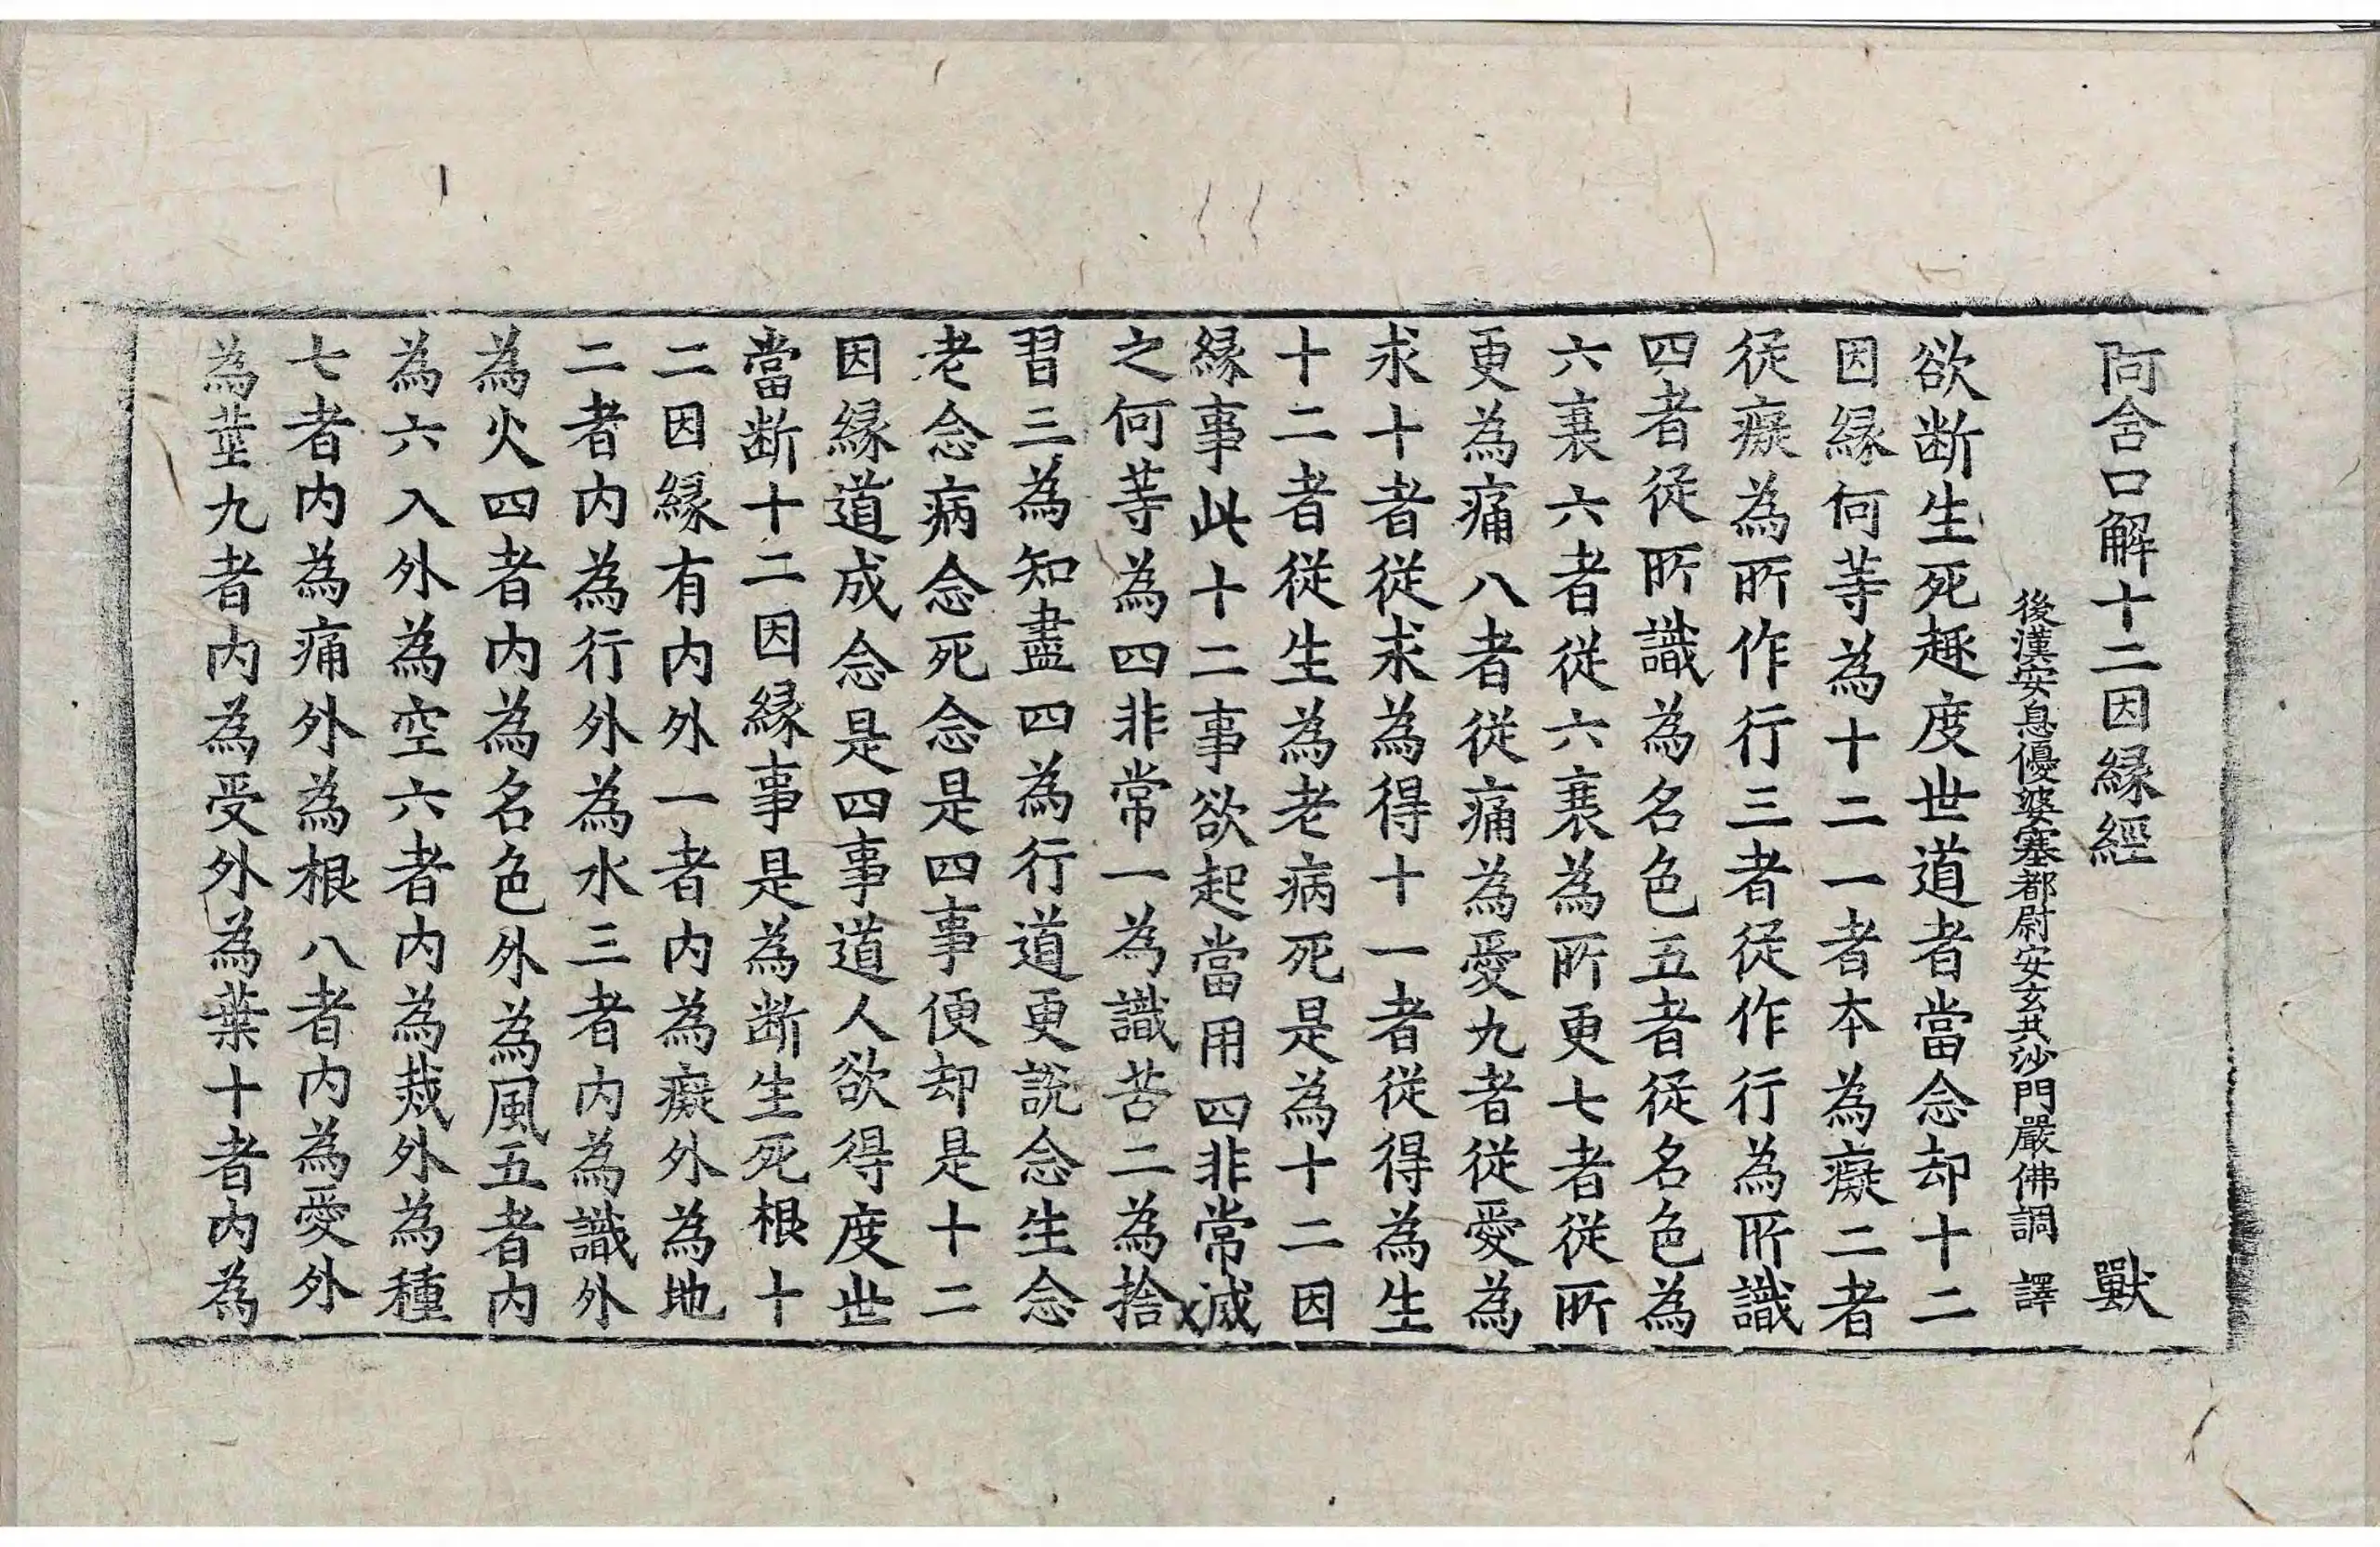 阿含口解十二因縁經 獸
後漢安息優婆塞都尉安玄共沙門嚴佛調 譯
欲断生死趣度世道者當念却十二
因縁何等為十二一者本為癡二者
従癡為所作行三者従作行為所識
四者従所識為名色五者従名色為
六衰六者従六衰為所更七者従所
更為痛八者従痛為愛九者従愛為
求十者従求為得十一者従得為生
十二者従生為老病死是為十二因
縁事此十二事欲起當用四非常滅
之何等為四非常一為識苦二為捨
習三為知盡四為行道更説念生念
老念病念死念是四事便却是十二
因縁道成念是四事道人欲得度世
當断十二因縁事是為断生死根十
二因縁有内外一者内為癡外為地
二者内為行外為水三者内為識外
為火四者内為名色外為風五者内
為六入外為空六者内為烖外為種
七者内為痛外為根八者内為愛外
為莖九者内為受外為葉十者内為